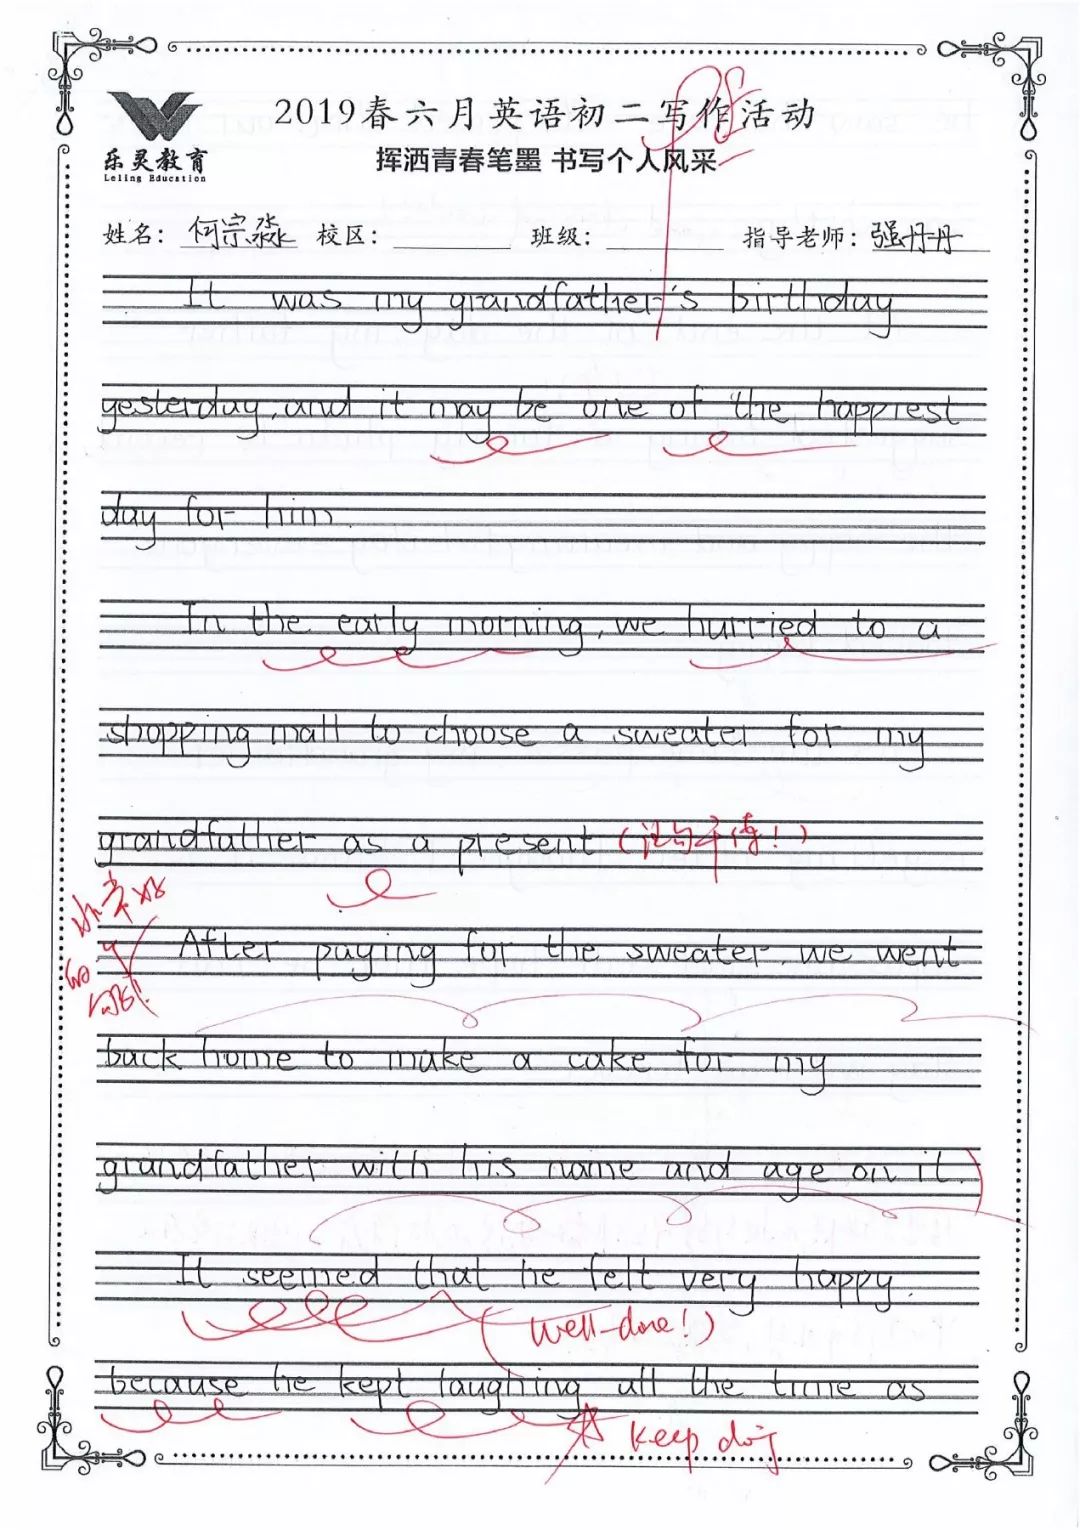 2019春六月英语初二写作活动
乐灵教育
Leling Education
挥洒青春笔墨 书写个人风采
姓名: 何宗淼 校区: 班级: 指导老师: 强丹丹
It was my grandfather's birthday
yesterday, and it may be one of the happiest
day for him.
In the early morning, we hurried to a
shopping mall to choose a sweater for my
grandfather as a present (过句子棒!)
After paying for the sweater, we went
back home to make a cake for my
grandfather with his name and age on it.
It seemed that he felt very happy.
(Well-done!)
because he kept laughing all the time as
keep doing